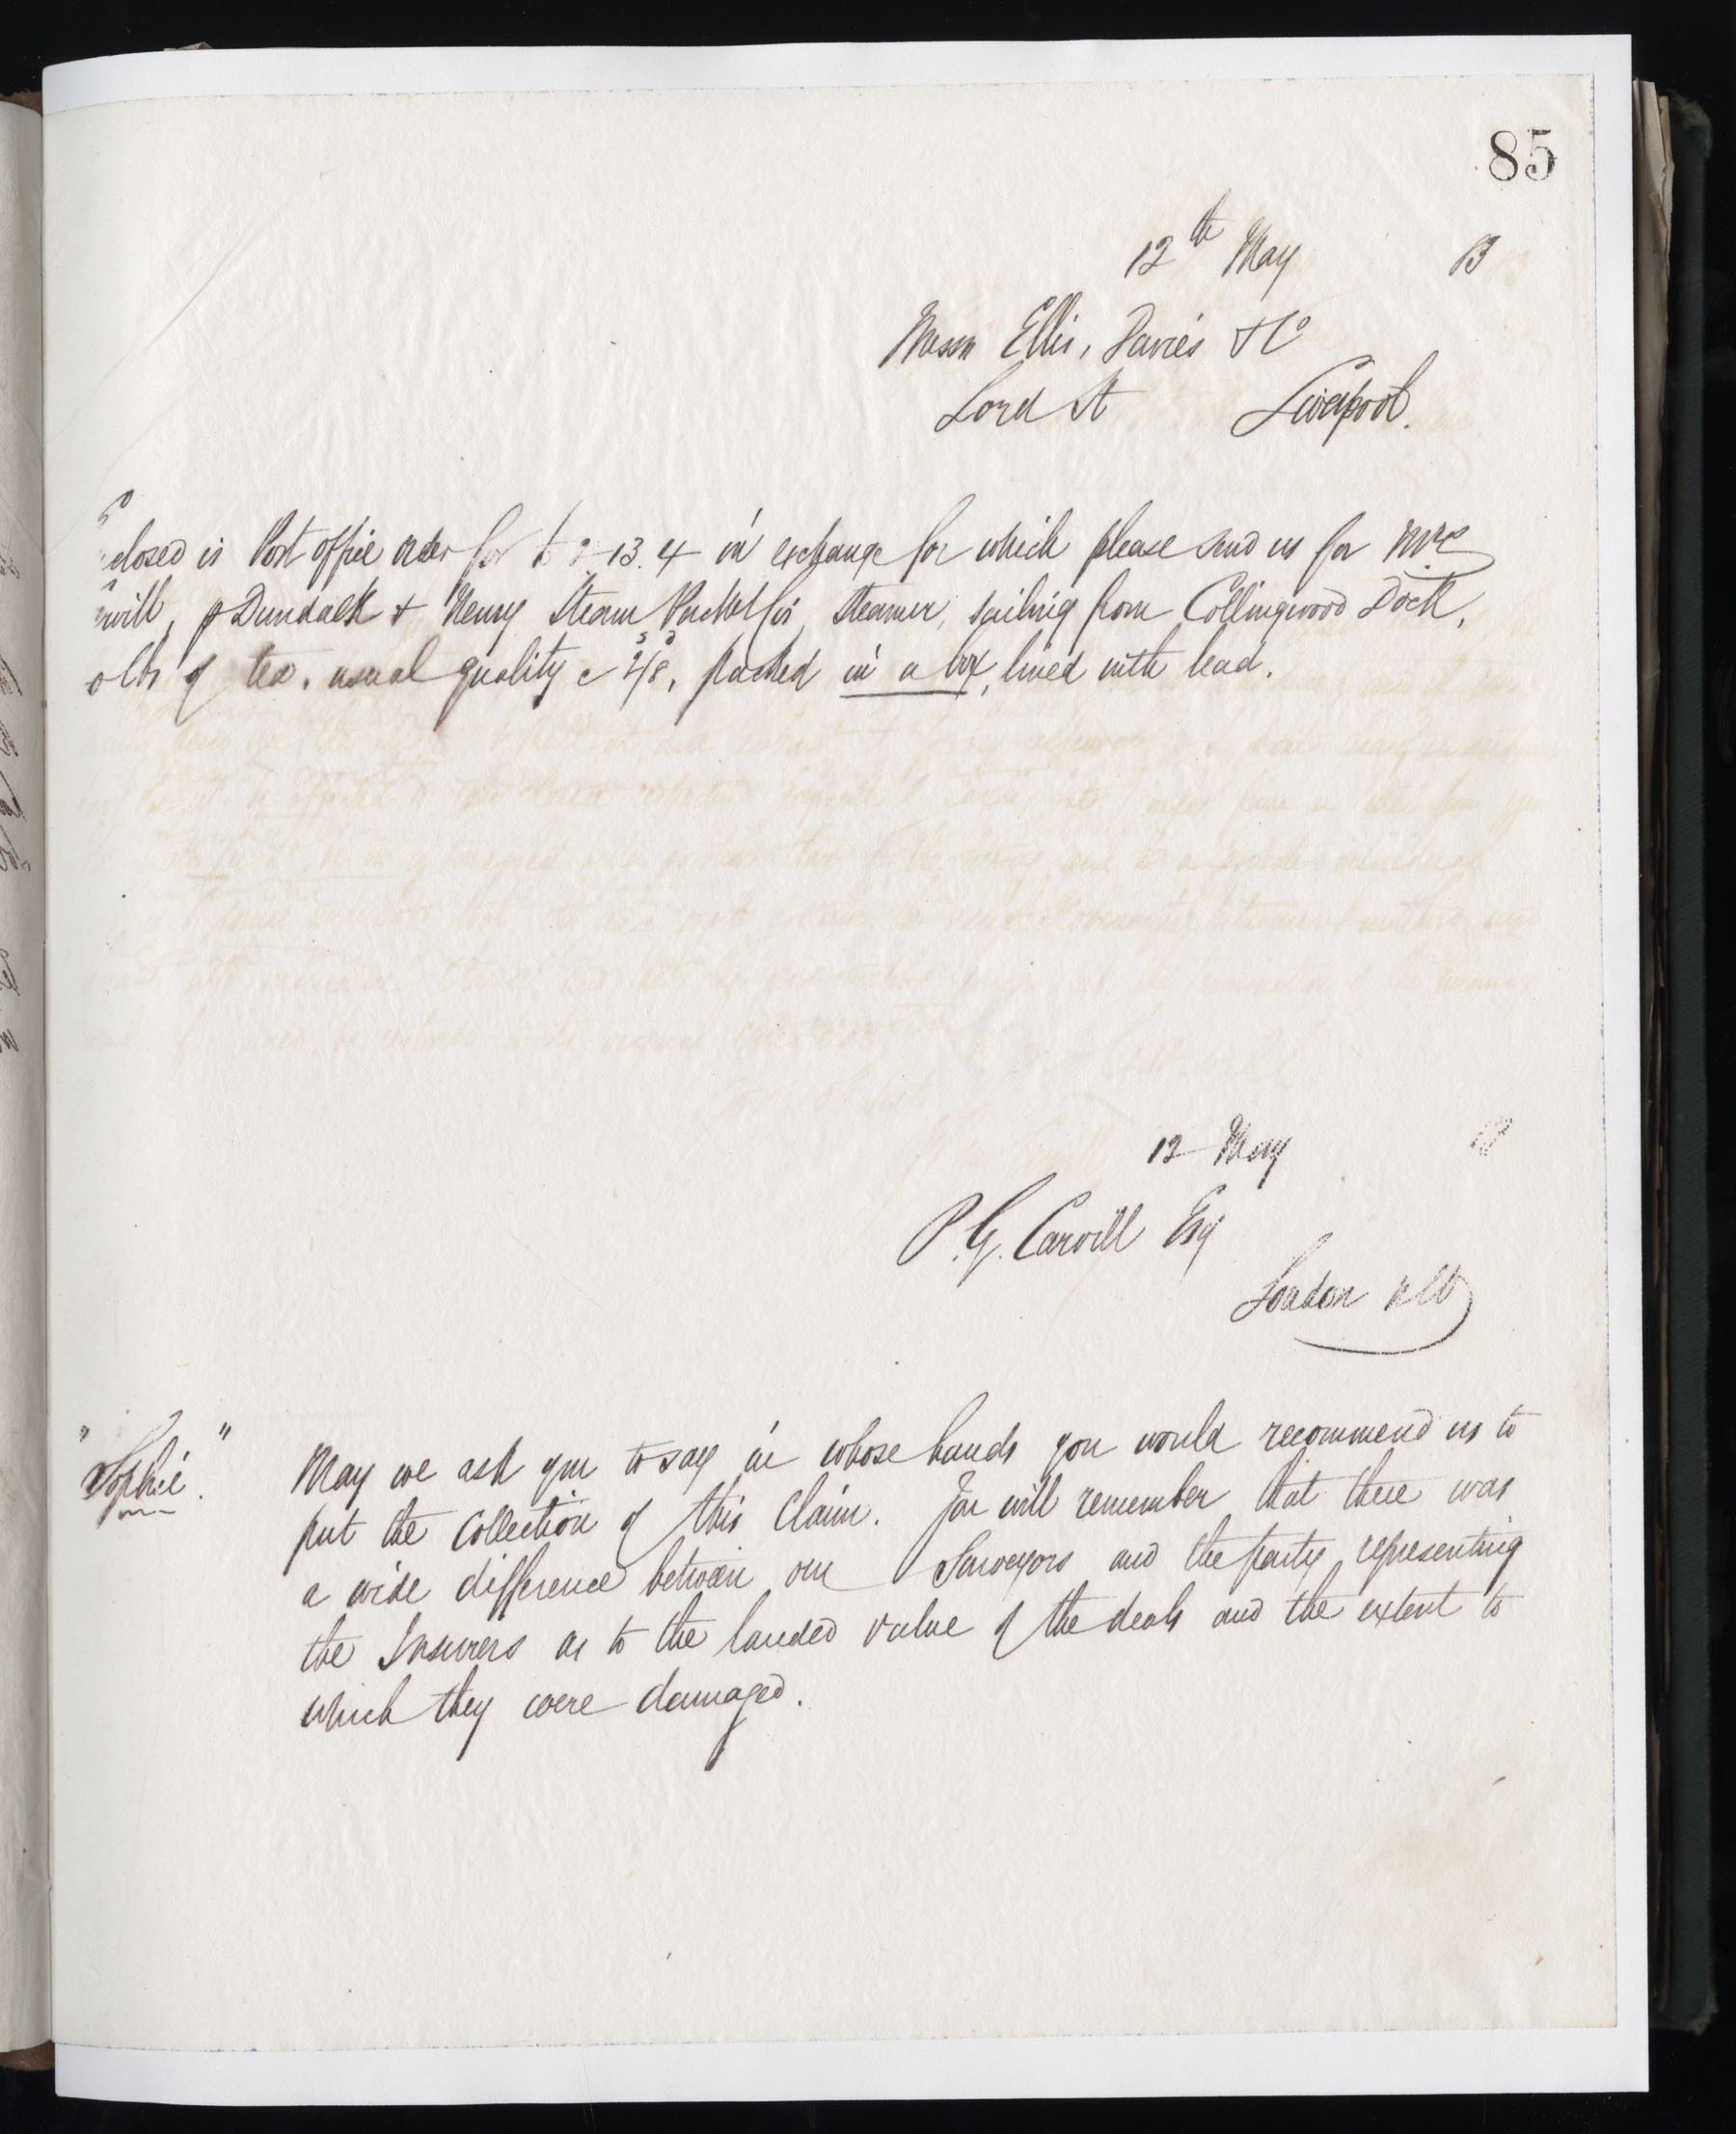 85
12th May 83
Messrs Ellis, Davies & Co
Lord St Liverpool.
closed is Post office order for £ 2-13.4 in exchange for which please send us for Mrs
vill, p Dundalk & Newry Steam Packet Co's steamer, sailing from Collingwood Dock,
0 lbs of tea, usual quality @ 2/8, packed in a box, lined with lead.
12 May 83
P.G. Carvill Esq
London NW
"Sophie."
May we ask you to say in whose hands you would recommend us to
put the Collection of this Claim. You will remember that there was
a wide difference between our Surveyors and the party representing
the Insurers as to the landed value of the deals and the extent to
which they were damaged.